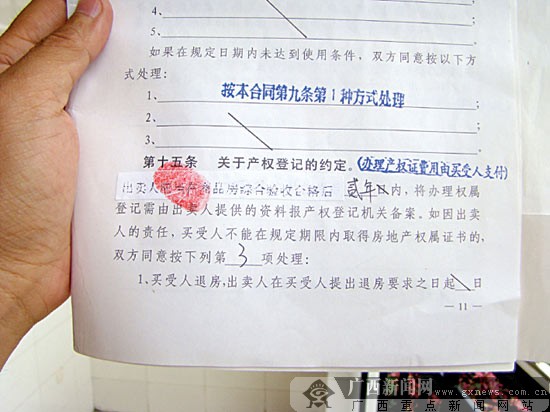 4、
5、
如果在规定日期内未达到使用条件，双方同意按以下方
式处理：
1、按本合同第九条第1种方式处理
2、
3、
第十五条 关于产权登记的约定。(办理产权证费用由买受人支付)
出卖人应当在商品房综合验收合格后 贰年 内，将办理权属
登记需由出卖人提供的资料报产权登记机关备案。如因出卖
人的责任，买受人不能在规定期限内取得房地产权属证书的，
双方同意按下列第 3 项处理：
1、买受人退房，出卖人在买受人提出退房要求之日起 日
—11—
广西新闻网
www.gxnews.com.cn
广西重点新闻网站